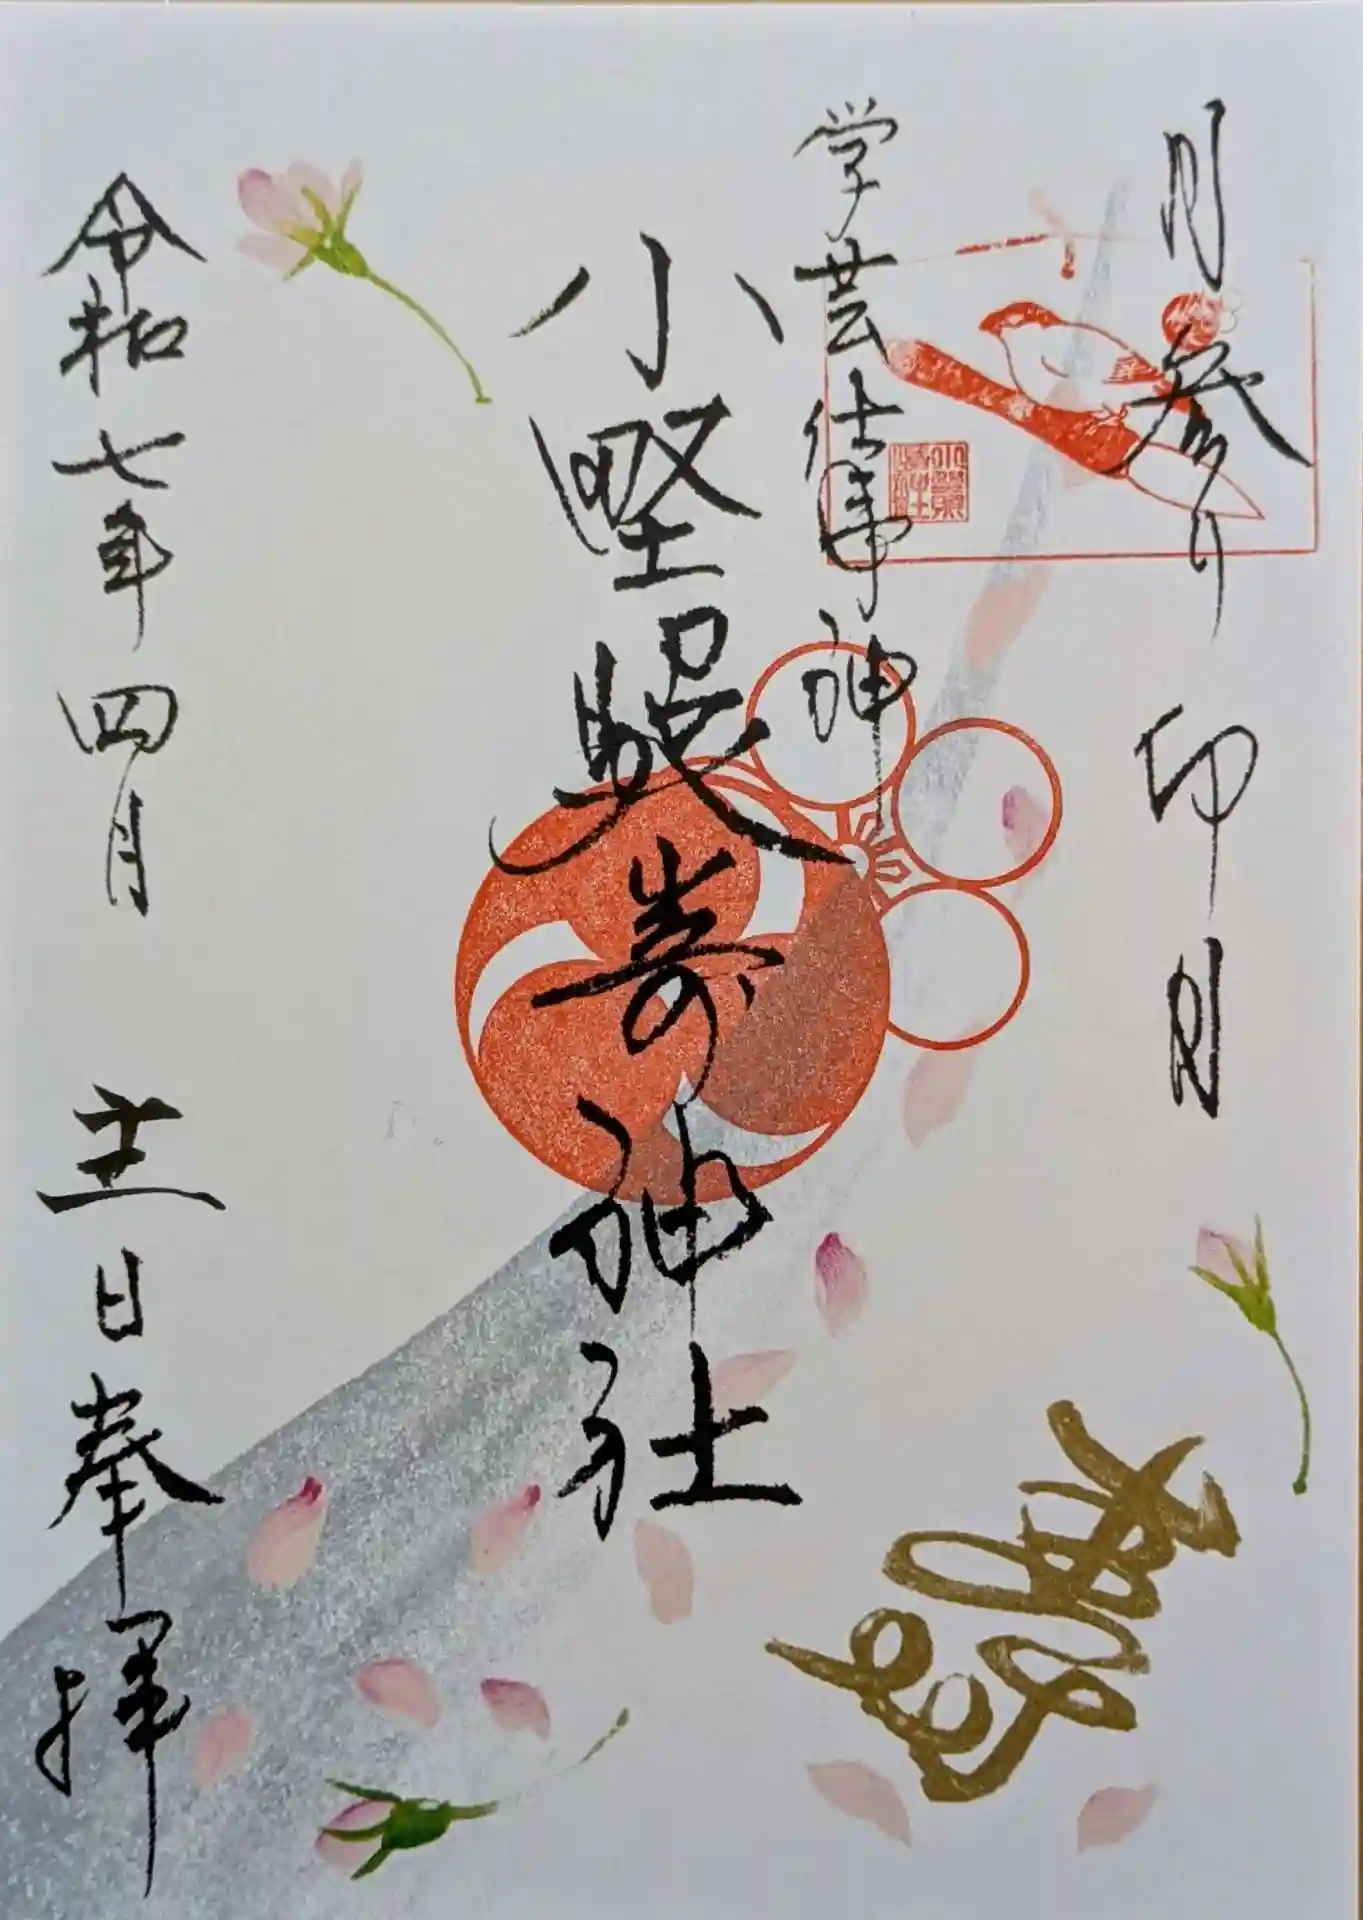 月参り 卯月
学芸仕事神
小野照崎神社
令和七年四月 十二日奉拝